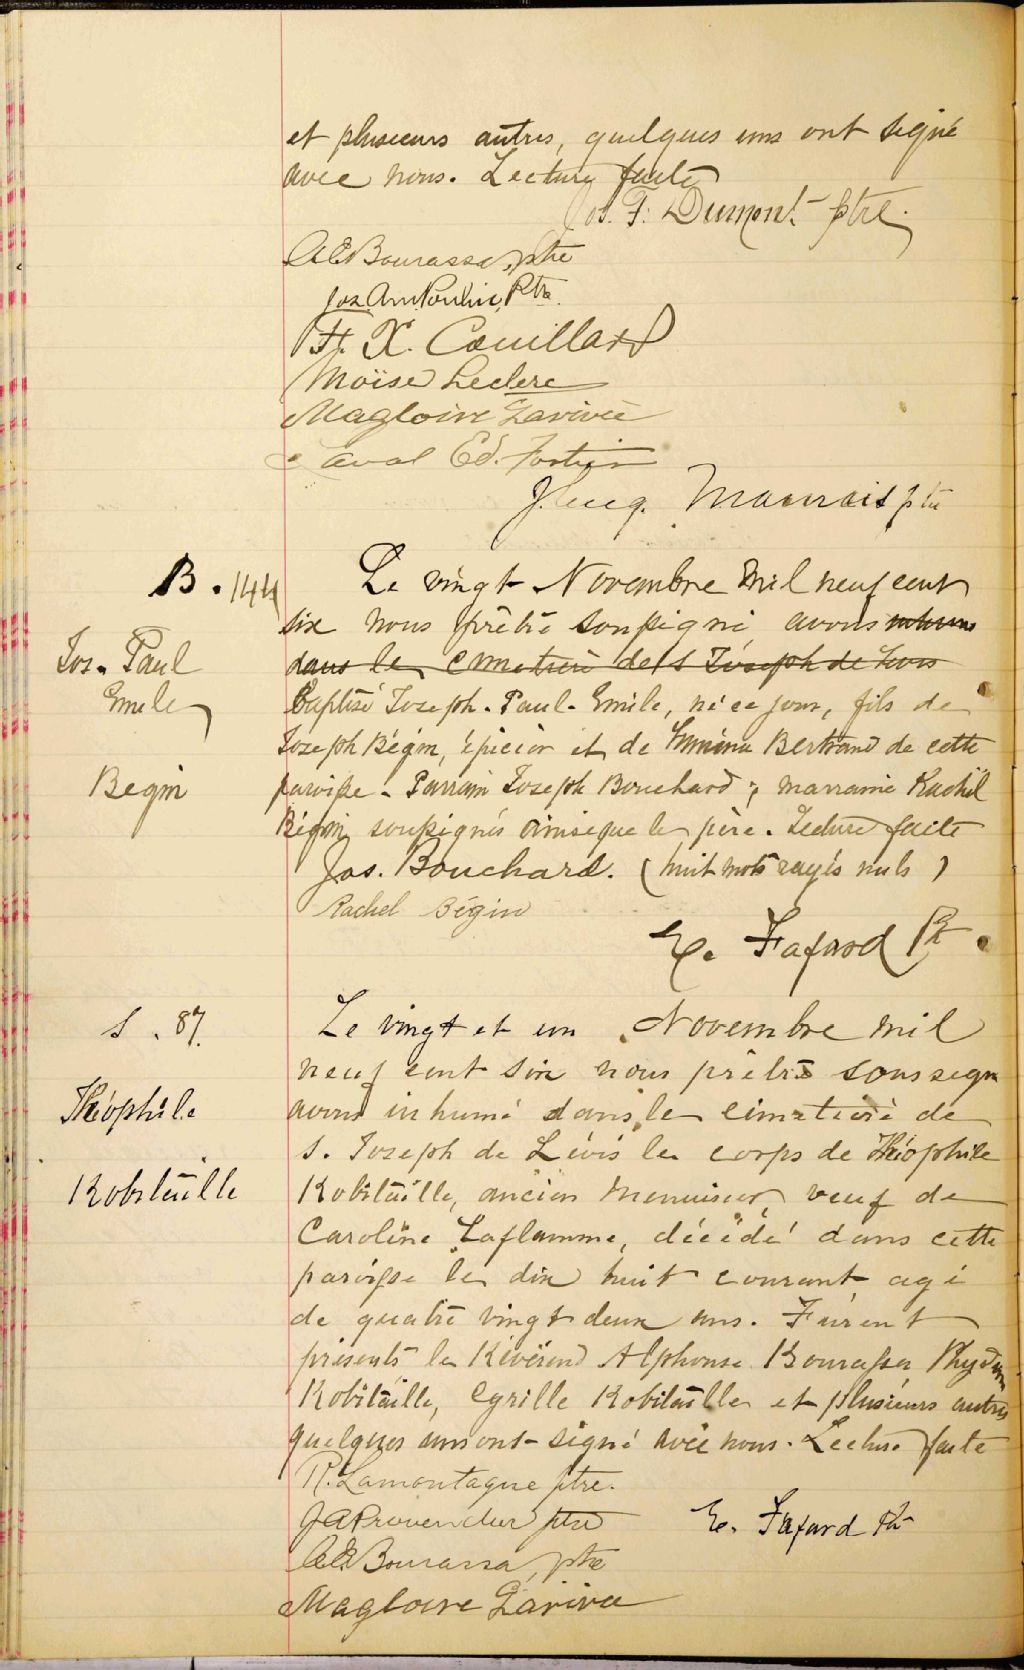 et plusieurs autres, quelques uns ont signé
avec nous. Lecture faite
Jos. F. Dumont ptre.
A E Bourassa, ptre
Jos Ant Poulin, Ptre.
F. X. Couillard
Moïse Leclerc
Magloire Larivée
Ed. Fortier
Mauvais ptre
B. 144
Le vingt Novembre mil neuf cent
six nous prêtre soussigné avons inhumé
Jos. Paul
dans le cimetière de S Joseph de Lévis
Emile
Baptisé Joseph-Paul-Emile, né ce jour, fils de
Joseph Bégin, épicier et de Bertrand de cette
Begin
paroisse - Parrain Joseph Bouchard; marraine Rachel
Bégin soussignés ainsi que le père. Lecture faite
Jos. Bouchard. (huit mots rayés nuls)
Rachel Bégin
E. Fafard Ptr
S. 87.
Le vingt et un Novembre mil
neuf cent six nous prêtre soussigné
Théophile
avons inhumé dans le cimetière de
S. Joseph de Lévis le corps de Théophile
Robitaille
Robitaille, ancien menuisier, veuf de
Caroline Laflamme, décédé dans cette
paroisse le dix huit courant agé
de quatre vingt deux ans. Furent
présents le Révérend Alphonse Bourassa,
Robitaille, Cyrille Robitaille et plusieurs autres
quelques uns ont signé avec nous. Lecture faite
R. Lamontagne ptre.
J A Provencher ptre
E. Fafard Ptr
A E Bourassa, ptre
Magloire Larivée